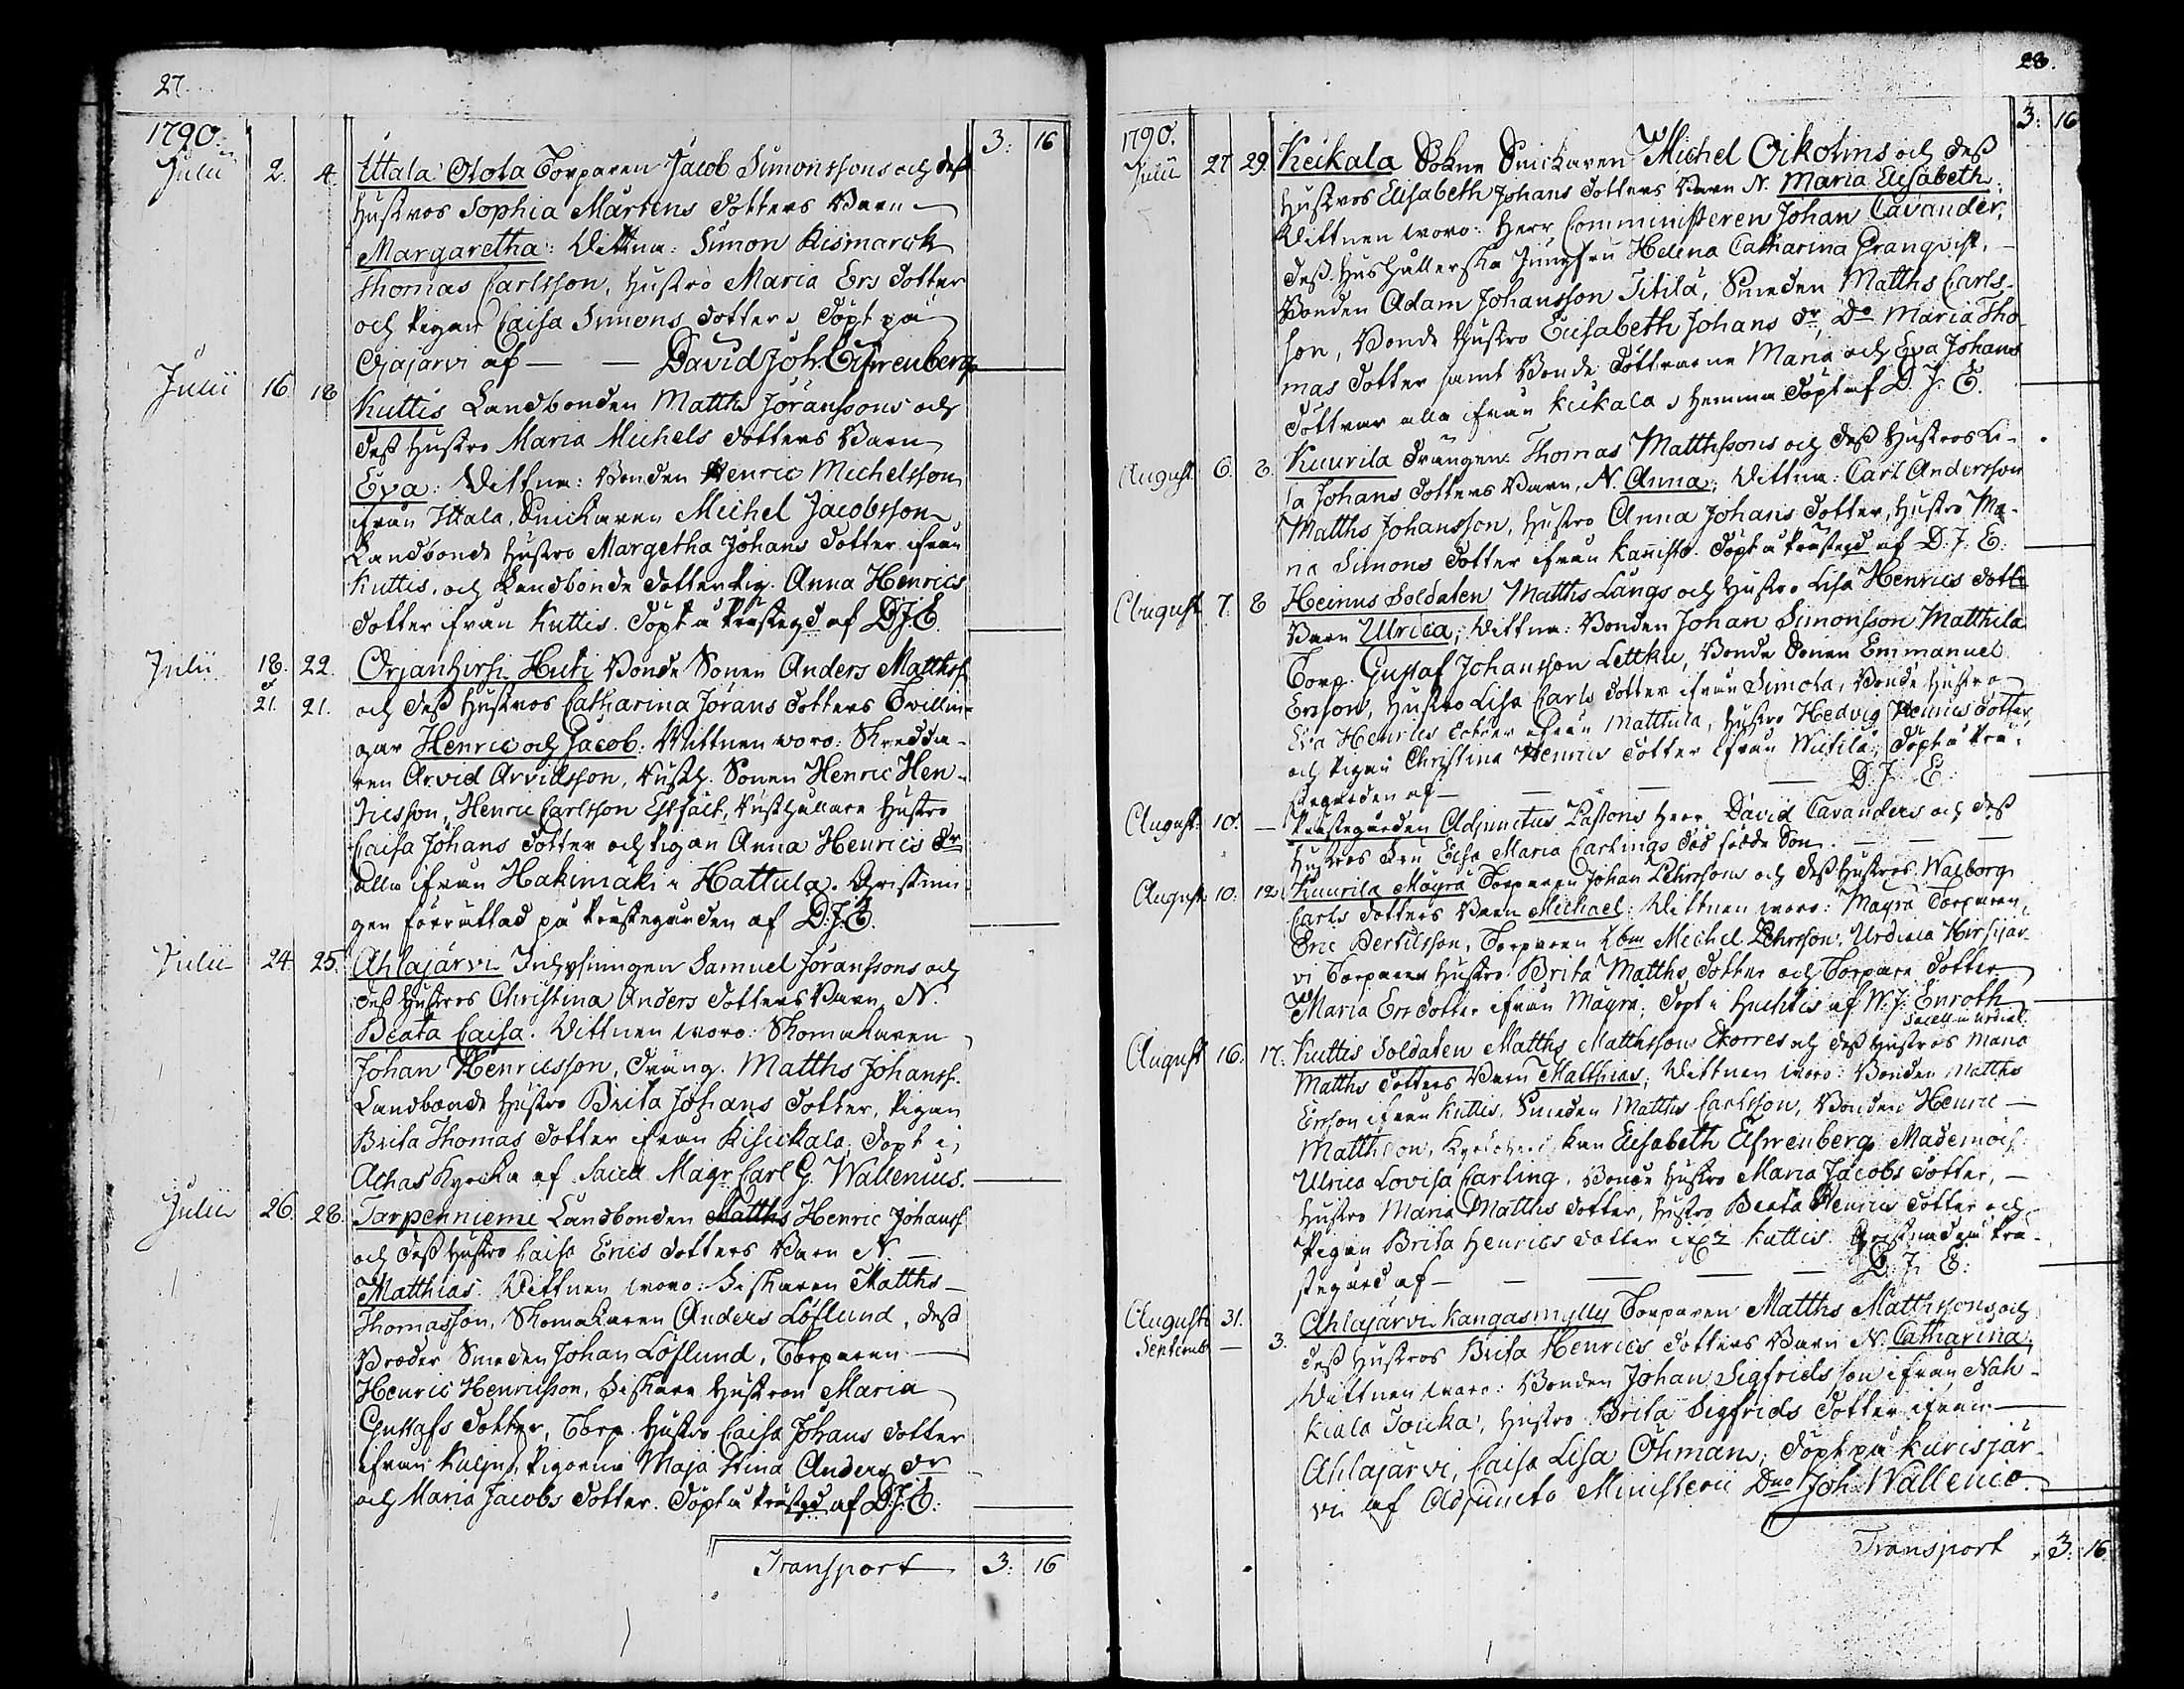 27.
1790. 3: 16
Julii 2. 4. Uttala Olola Torparen Jacob Simonssons och dess
Hustros Sophia Mårtens dotters Barn
Margaretha: Vittna: Simon Kismarck
Thomas Carlsson, Hustro Maria Ers dotter
och Pigan Caisa Simons dotter, döpt på
Ojajärvi af — — David Joh. Elfwenberg
Julii 16 18 Kuttis Landbonden Matths Jöranssons och
dess Hustro Maria Michels dotters Barn
Eva: Vittna: Bonden Henric Michelsson
ifrån Ittala, Snickaren Michel Jacobsson
Landbonde Hustro Margetha Johans dotter ifrån
Kuttis, och Landbonde dotter Pig. Anna Henrics
dotter ifrån Kuttis. Döpt å Prästegd af D.J.E.
Julii 18. 22. Orjanhirsi Huti Bonde Sonen Anders Matthss.
et 21. 21. och dess Hustros Catharina Jörans dotters Tvillin-
gar Henric och Jacob: Vittnen woro: Skredda-
ren Arvid Arvidsson, Rusth. Sonen Henric Hen-
ricsson, Henric Carlsson Estfält, Rusthållare Hustro
Caisa Johans dotter och Pigan Anna Henrics dr
alla ifrån Hakimäki i Hattula. Christnin-
gen förrättad på Prästegården af D.J.E.
Julii 24. 25. Ahlajärvi Inhysingen Samuel Jöranssons och
dess Hustros Christina Anders dotters Barn N.
Beata Caisa. Vittnen woro: Skomakaren
Johan Henricsson, dräng. Matths Johanss.
Landbonde Hustro Brita Johans dotter, Pigan
Brita Thomas dotter ifrån Kisickala. Döpt i
Achas Kyrcka af Sacell. Magr Carl G. Wallenius.
Julii 26. 28. Tarpenniemi Landbonden Matths Henric Johanss.
och dess Hustro Caisa Erics dotters Barn N. —
Matthias. Vittnen woro: Fiskaren Matths
Thomasson, Skomakaren Anders Löflund, dess
Broder Smeden Johan Löflund, Torparen
Henric Henricsson, Fiskare Hustron Maria
Gustafs dotter, Torp. Hustro Caisa Johans dotter
ifrån Kuljus, Pigorna Maja Stina Anders dr
och Maria Jacobs dotter. Döpt å Prästegd af D.J.E.
Transport 3: 16
28.
1790. 3: 16
Julii 27 29. Keikala Sokne Snickaren Michel Oikolins och dess
Hustros Elisabeth Johans dotters Barn N. Maria Elisabeth.
Vittnen woro: Herr Comministeren Johan Cavander,
dess Hushållerska Jungfru Helena Catharina Granqvist.
Bonden Adam Johansson Titilä, Smeden Matths Carls-
son, Bonde Hustro Elisabeth Johans dr, Do Maria Tho-
mas dotter samt Bonde döttrarne Maria och Eva Johans
döttrar alla ifrån Keikala, Hemma döpt af D. J. E.
August. 6. 8. Kuurila drängen Thomas Matthssons och dess Hustros Li-
sa Johans dotters Barn, N. Anna; Vittna: Carl Andersson
Matths Johansson, Hustro Anna Johans dotter, Hustro Ma-
ria Simons dotter ifrån Kannisto. Döpt å Prästegd af D. J. E.
August. 7. 8 Heinus Soldaten Matths Långs och Hustro Lisa Henrics dotters
Barn Ulrica; Vittna: Bonden Johan Simonsson Matthila
Torp. Gustaf Johansson Lettku, Bonde Sonen Emmanuel
Ersson, Hustro Lisa Carls dotter ifrån Simola, Bonde Hustro
Eva Henrics dotter ifrån Mattula, Hustro Hedvig Henrics dotter
och Pigan Christina Henrics dotter ifrån Wictila; döpt å Prä-
stegården af — — — — D. J. E.
August. 10. — Prästegården Adjunctus Pastoris Herr David Cavanders och dess
Hustros Fru Elsa Maria Carlings död födde Son. — — —
August. 10. 12. Kuurila Mäyrä Torparen Johan Pehrssons och dess Hustros Walborg
Carls dotters Barn Michael: Vittnen woro: Mäyrä Torparen
Eric Bertilsson, Torparen ibm Michel Pehrsson, Urdiala Hirsijär-
vi Torparen Hustro Brita Matths dotter och Torpare dotter
Maria Ers dotter ifrån Mäyrä. Döpt i Huittis af W. J. Enroth
Sacell. in Urdial.
August. 16. 17. Kuttis Soldaten Matths Matthssons Ekorres och dess Hustros Maria
Matths dotters Barn Matthias; Vittnen woro: Bonden Matths
Ersson ifrån Kuttis, Smeden Matths Carlsson, Bonden Henric —
Matthsson, Elisabeth Elfwenberg Mademois.
Ulrica Lovisa Carling, Bonde Hustro Maria Jacobs dotter, —
Hustro Maria Matths dotter, Hustro Beata Henrics dotter och
Pigan Brita Henrics dotter Kuttis. Christnad på Prä-
stegård af — — — — D. J. E.
Augusti 31. Ahlajärvi Kangasmylly Torparen Matths Matthssons och
Septemb. — 3. dess Hustros Brita Henrics dotters Barn N. Catharina,
Vittnen woro: Bonden Johan Sigfridsson ifrån Nah-
kiala Jouka, Hustro Brita Sigfrids dotter ifrån
Ahlajärvi, Caisa Lisa Öhman; döpt på Kurisjär-
vi af Adjuncto Ministerii Dno Joh. Wallenio.
Transport 3: 16